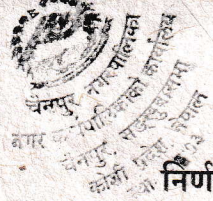 चैनपुर नगरपालिका
नगर कार्यपालिकाको कार्यालय
चैनपुर, सङ्खुवासभा
कोशी प्रदेश, नेपाल
निर्ण